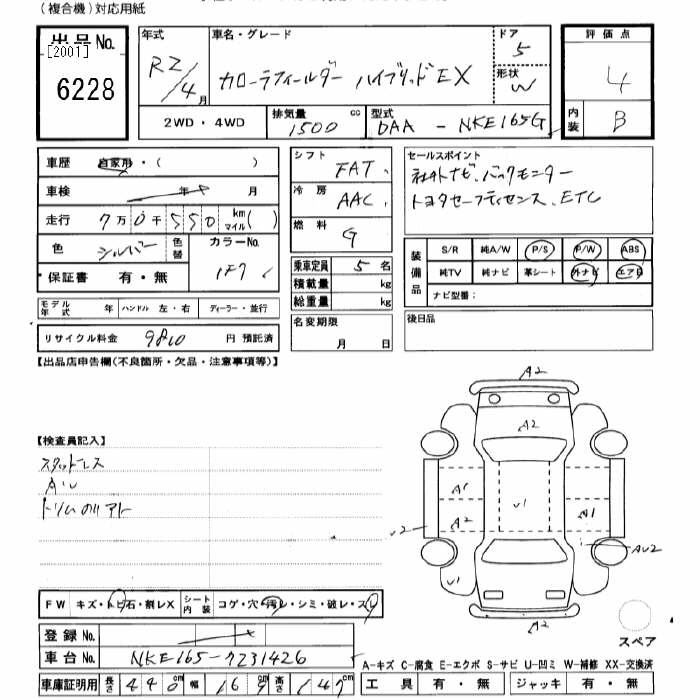 (複合機)対応用紙
出品No.
[2001]
6228
年式 R2/4月
車名・グレード
カローラフィールダー ハイブリッドEX
ドア 5
形状 W
評価点 4
内装 B
2WD・4WD
排気量 1500 cc
型式 DAA-NKE165G
車歴 自家用・( )
車検 年 月
走行 7万0千550 km マイル( )
色 シルバー 色替
カラーNo. 1F7
保証書 有・無
モデル年式 年 ハンドル 左・右 ディーラー・並行
リサイクル料金 9810 円 預託済
シフト FAT
冷房 AAC
燃料 G
乗車定員 5名
積載量 kg
総重量 kg
名変期限
月 日
セールスポイント
社外ナビ.バックモニター
トヨタセーフティセンス.ETC
装備品
S/R 純A/W P/S P/W ABS
純TV 純ナビ 革シート 外ナビ エアB
ナビ型番:
後日品
【出品店申告欄(不良箇所・欠品・注意事項等)】
【検査員記入】
スタッドレス
トリムのリアト
FW キズ・トビ石・割レX シート内装 コゲ・穴・汚レ・シミ・破レ・スレ
登録No.
車台No. NKE165-7231426
車庫証明用 長さ 440cm 幅 169 高さ 147
A2
A2
A1
A2
V1
A1
V2
AU2
V1
A2
スペア
A-キズ C-腐食 E-エクボ S-サビ U-凹ミ W-補修 XX-交換済
工具 有・無 ジャッキ 有・無